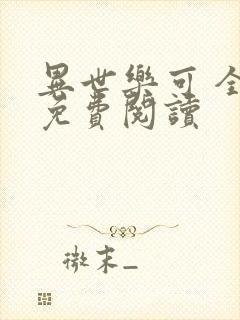 異世樂可 全
免費閱讀
微末_